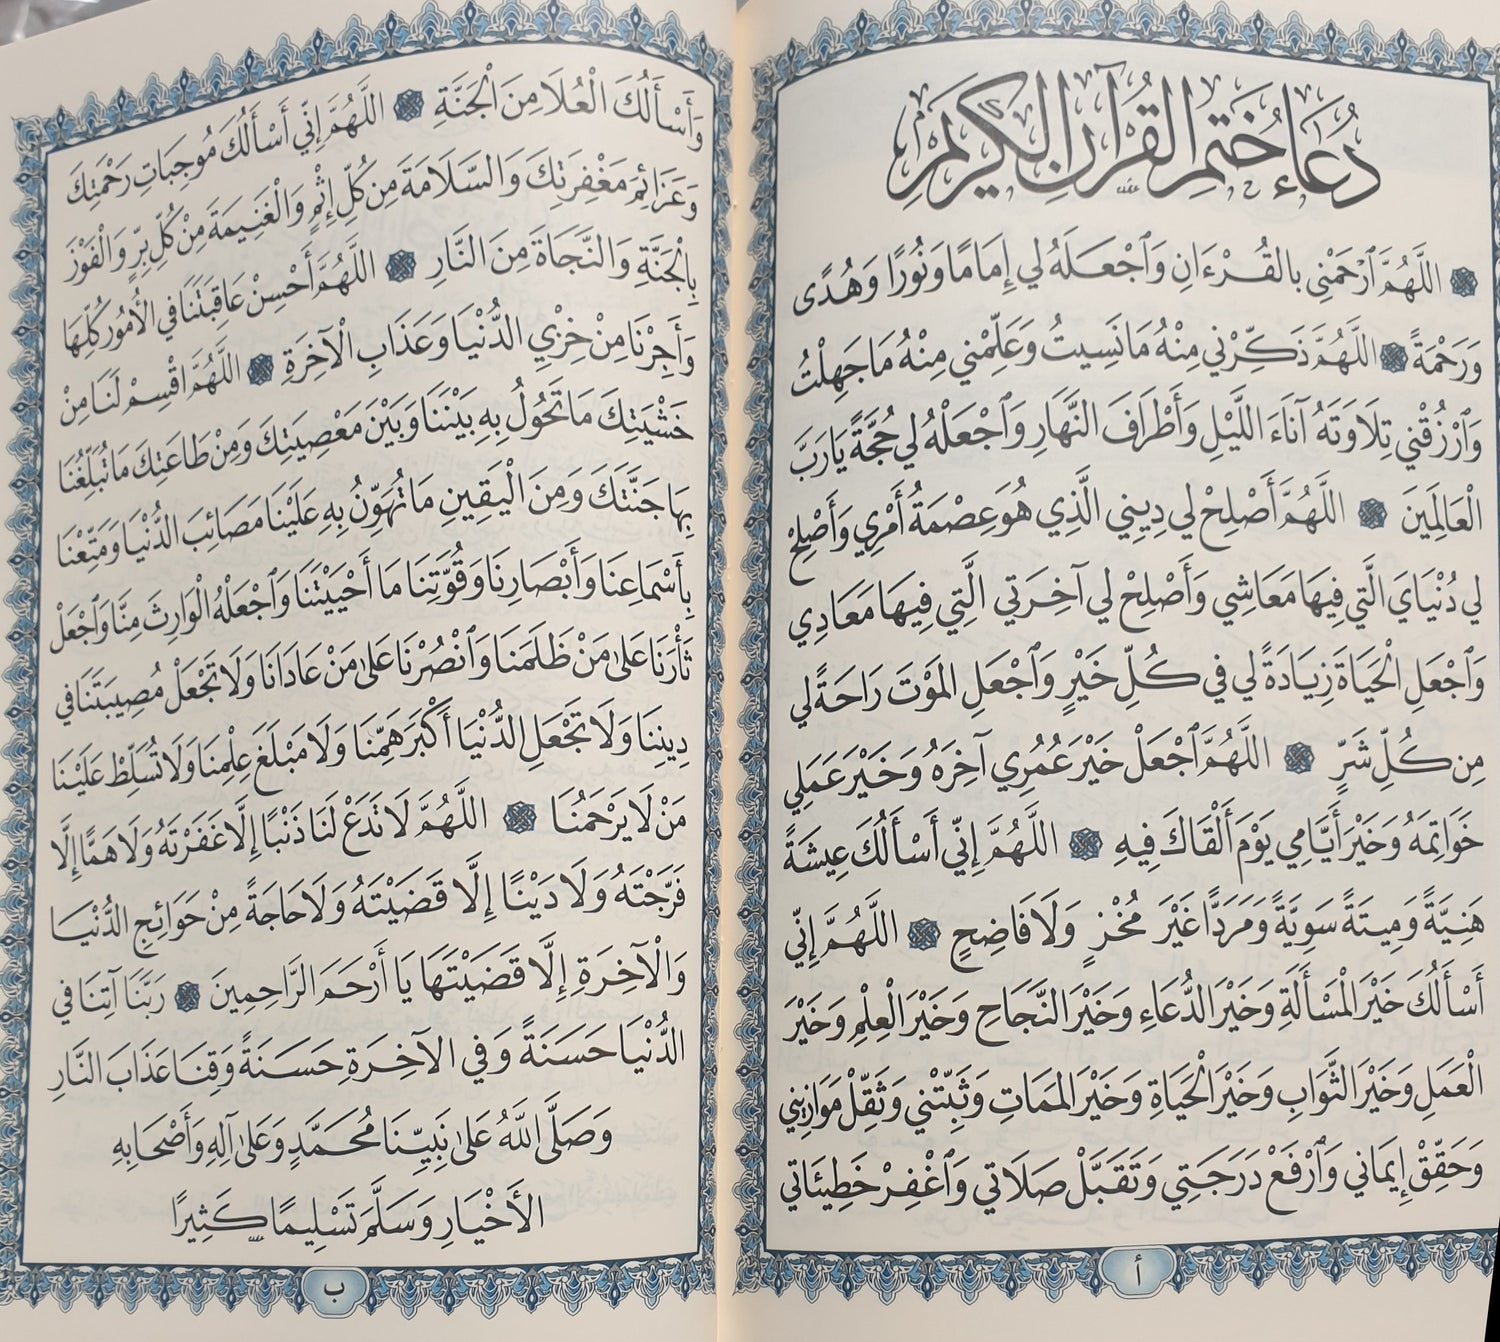 دُعَاءُ خَتْمِ القُرْآنِ الكَرِيمِ
اللَّهُمَّ ٱرْحَمْنِي بالقُرْءَانِ وَٱجْعَلهُ لي إِمَامًا وَنُورًا وَهُدًى
وَرَحْمَةً اللَّهُمَّ ذَكِّرْنِي مِنْهُ مَانَسِيتُ وَعَلِّمْنِي مِنْهُ مَاجَهِلْتُ
وَٱرْزُقْنِي تِلَاوَتَهُ آنَاءَ اللَّيْلِ وَأَطْرَافَ النَّهَارِ وَٱجْعَلْهُ لي حُجَّةً يَارَبَّ
الْعَالَمِينَ اللَّهُمَّ أَصْلِحْ لي دِينِي الَّذِي هُوَ عِصْمَةُ أَمْرِي وَأَصْلِحْ
لي دُنْيَايَ الَّتي فِيهَا مَعَاشِي وَأَصْلِحْ لي آخِرَتي الَّتي فِيهَا مَعَادِي
وَٱجْعَلِ الْحَيَاةَ زِيَادَةً لي في كُلِّ خَيْرٍ وَٱجْعَلِ المَوْتَ رَاحَةً لي
مِن كُلِّ شَرٍّ اللَّهُمَّ ٱجْعَلْ خَيْرَ عُمُرِي آخِرَهُ وَخَيْرَ عَمَلي
خَوَاتِمَهُ وَخَيْرَ أَيَّامِي يَوْمَ أَلْقَاكَ فِيهِ اللَّهُمَّ إِنّي أَسْأَلُكَ عِيشَةً
هَنِيَّةً وَمِيتَةً سَوِيَّةً وَمَرَدًّا غَيْرَ مُخْزٍ وَلَا فَاضِحٍ اللَّهُمَّ إِنّي
أَسْأَلُكَ خَيْرَ المَسْأَلَةِ وَخَيْرَ الدُّعَاءِ وَخَيْرَ النَّجَاحِ وَخَيْرَ الْعِلْمِ وَخَيْرَ
الْعَمَلِ وَخَيْرَ الثَّوَابِ وَخَيْرَ الْحَيَاةِ وَخَيْرَ المَمَاتِ وَثَبِّتْنِي وَثَقِّلْ مَوَازِيني
وَحَقِّقْ إِيمَاني وَٱرْفَعْ دَرَجَتِي وَتَقَبَّلْ صَلَاتي وَٱغْفِرْ خَطِيئَاتي
أ
وَأَسْأَلُكَ الْعُلَا مِنَ الْجَنَّةِ اللَّهُمَّ إِنّي أَسْأَلُكَ مُوجِبَاتِ رَحْمَتِكَ
وَعَزَائِمَ مَغْفِرَتِكَ وَالسَّلَامَةَ مِن كُلِّ إِثْمٍ وَالْغَنِيمَةَ مِنْ كُلِّ بِرٍّ وَالْفَوْزَ
بِالْجَنَّةِ وَالنَّجَاةَ مِنَ النَّارِ اللَّهُمَّ أَحْسِنْ عَاقِبَتَنَا في الأُمُورِ كُلِّهَا
وَأَجِرْنَا مِنْ خِزْيِ الدُّنْيَا وَعَذَابِ الْآخِرَةِ اللَّهُمَّ اقْسِمْ لَنَا مِنْ
خَشْيَتِكَ مَا تَحُولُ بِهِ بَيْنَنَا وَبَيْنَ مَعْصِيَتِكَ وَمِنْ طَاعَتِكَ مَا تُبَلِّغُنَا
بِهَا جَنَّتَكَ وَمِنَ الْيَقِينِ مَا تُهَوِّنُ بِهِ عَلَيْنَا مَصَائِبَ الدُّنْيَا وَمَتِّعْنَا
بِأَسْمَاعِنَا وَأَبْصَارِنَا وَقُوَّتِنَا مَا أَحْيَيْتَنَا وَٱجْعَلْهُ الْوَارِثَ مِنَّا وَٱجْعَلْ
ثَأْرَنَا عَلىٰ مَنْ ظَلَمَنَا وَٱنْصُرْنَا عَلىٰ مَنْ عَادَانَا وَلَا تَجْعَلْ مُصِيبَتَنَا في
دِينِنَا وَلَا تَجْعَلِ الدُّنْيَا أَكْبَرَ هَمِّنَا وَلَا مَبْلَغَ عِلْمِنَا وَلَا تُسَلِّطْ عَلَيْنَا
مَنْ لَا يَرْحَمُنَا اللَّهُمَّ لَا تَدَعْ لَنَا ذَنْبًا إِلَّا غَفَرْتَهُ وَلَا هَمًّا إِلَّا
فَرَّجْتَهُ وَلَا دَيْنًا إِلَّا قَضَيْتَهُ وَلَا حَاجَةً مِنْ حَوَائِجِ الدُّنْيَا
وَالْآخِرَةِ إِلَّا قَضَيْتَهَا يَا أَرْحَمَ الرَّاحِمِينَ رَبَّنَا آتِنَا في
الدُّنْيَا حَسَنَةً وَفي الآخِرَةِ حَسَنَةً وَقِنَا عَذَابَ النَّارِ
وَصَلَّى اللَّهُ عَلىٰ نَبِيِّنَا مُحَمَّدٍ وَعَلىٰ آلِهِ وَأَصْحَابِهِ
الأَخْيَارِ وَسَلَّمَ تَسْلِيمًا كَثِيرًا
ب